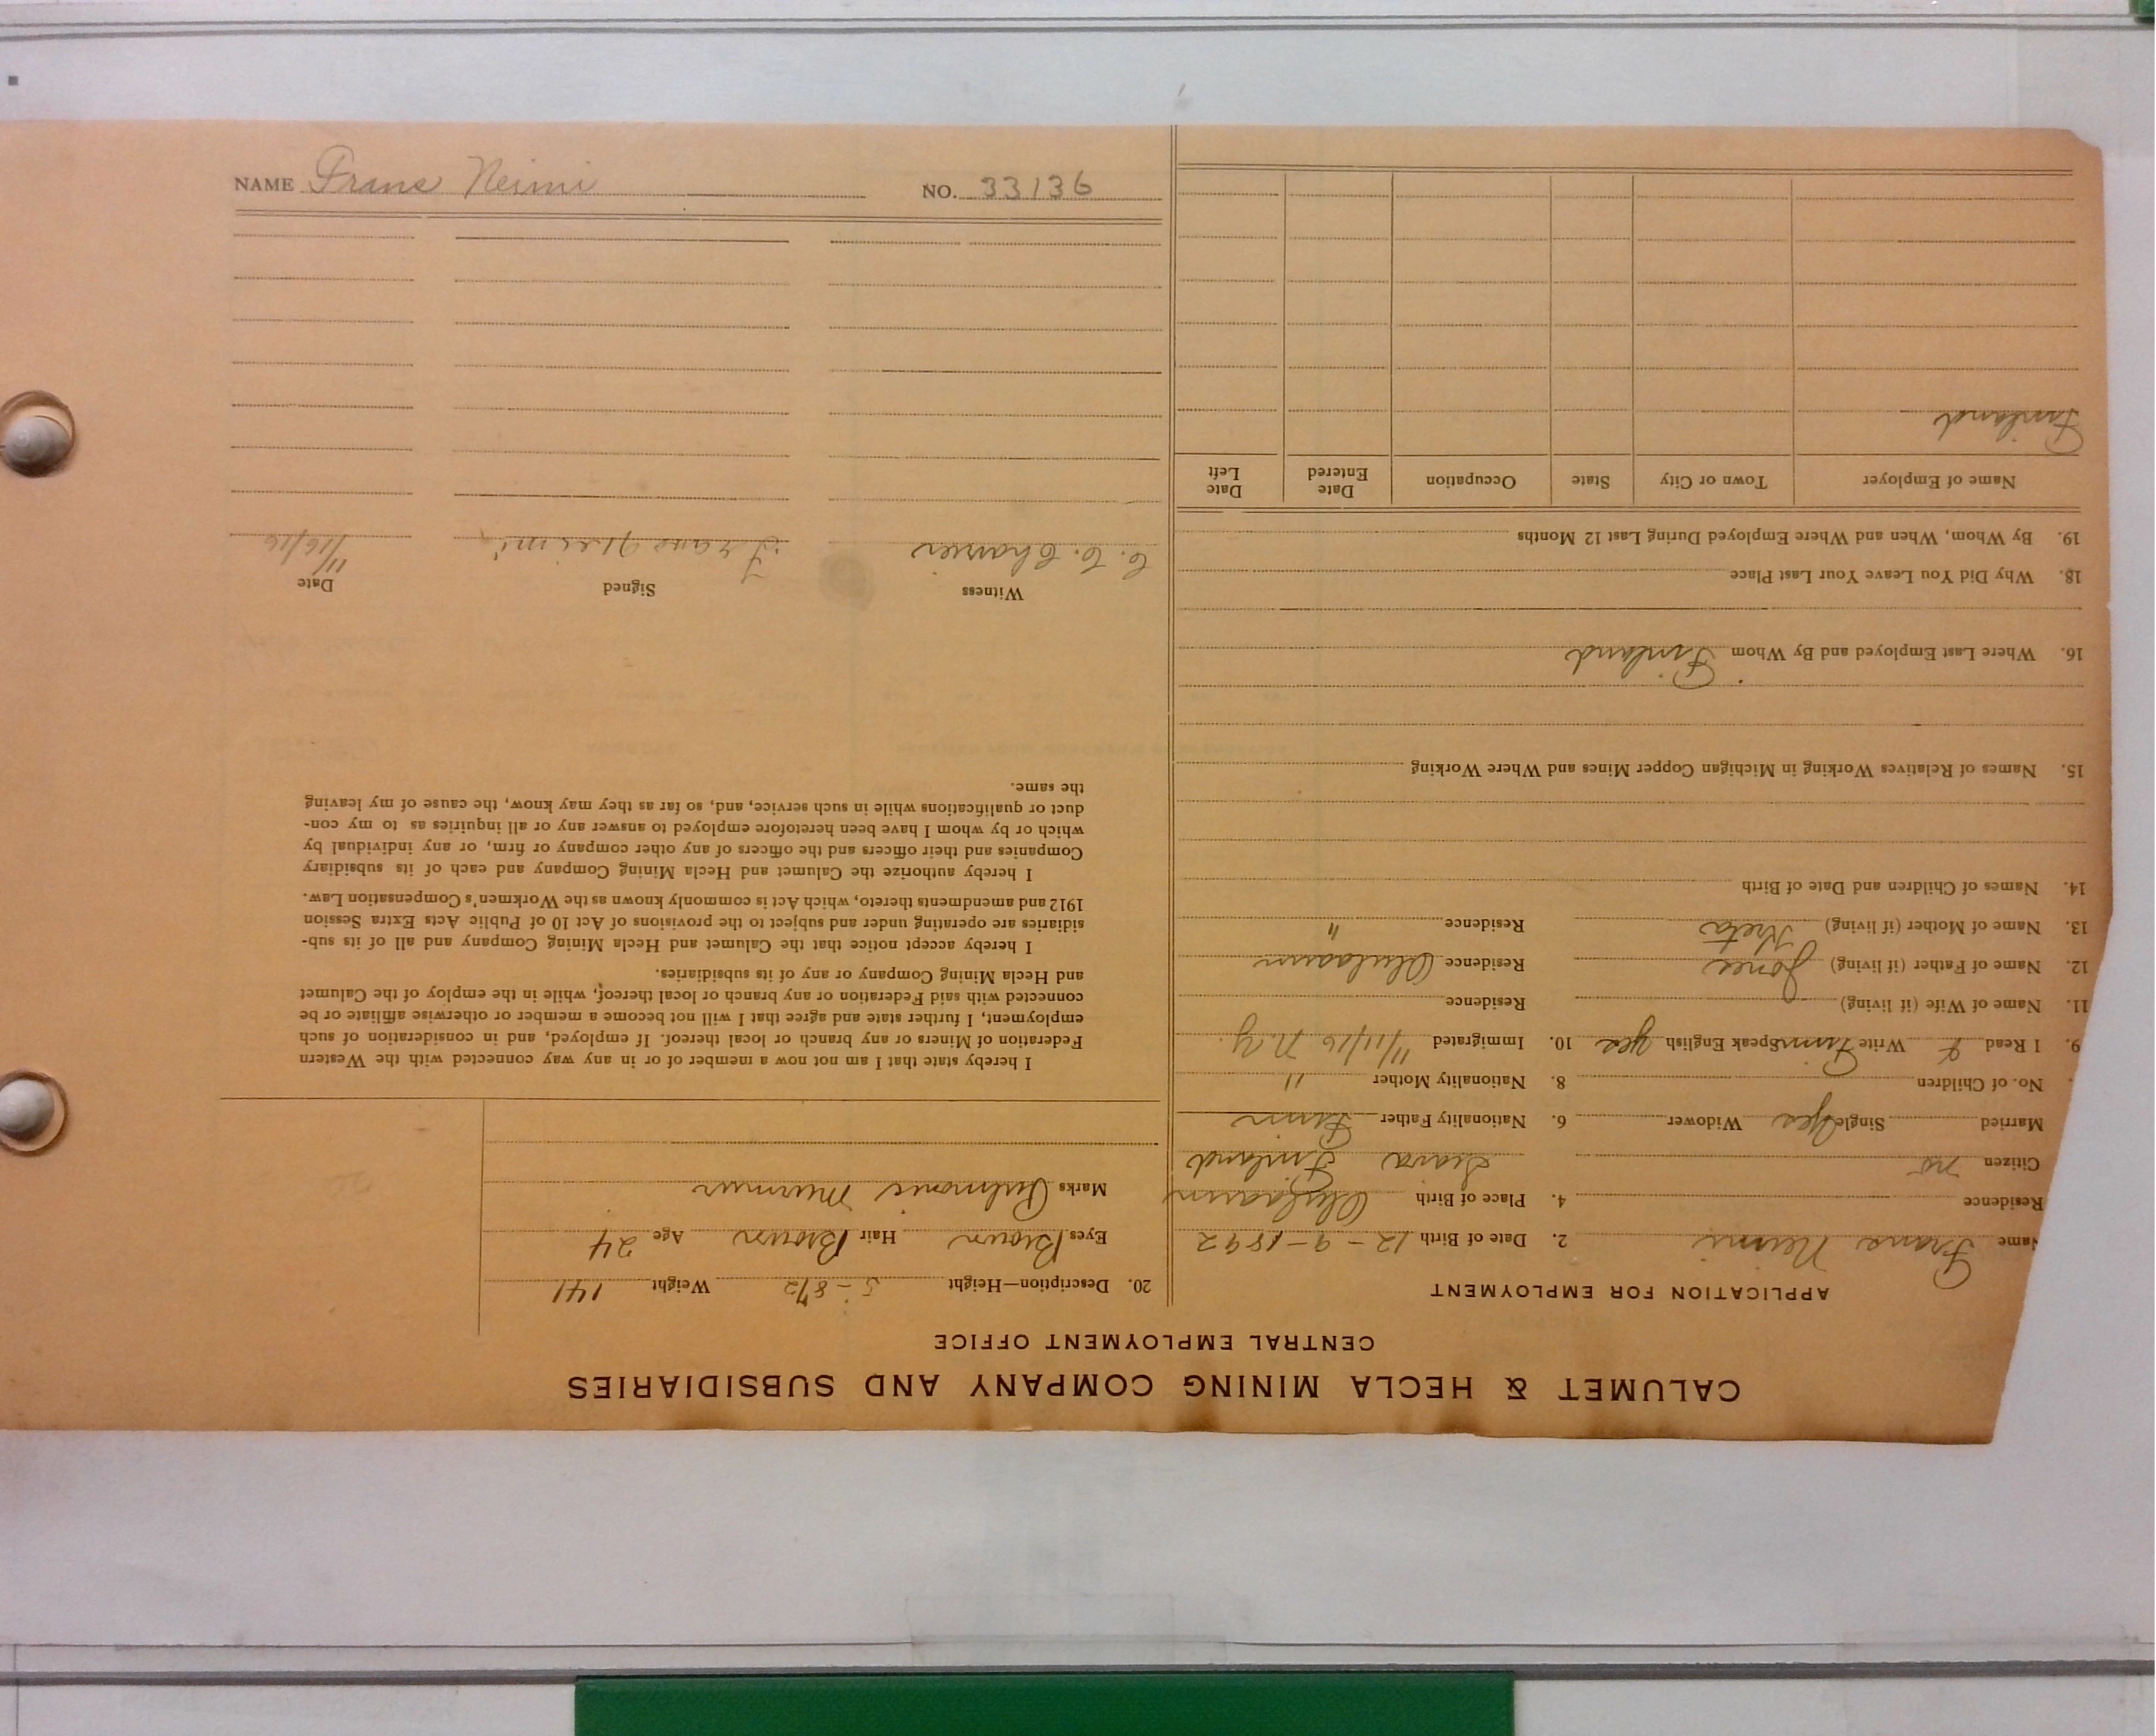 NAME Frans Neimi NO. 33136
CALUMET & HECLA MINING COMPANY AND SUBSIDIARIES
CENTRAL EMPLOYMENT OFFICE
APPLICATION FOR EMPLOYMENT
Name Frans Neimi 2. Date of Birth 12-9-1892
Residence 4. Place of Birth
Citizen no Finland
Married Single Yes Widower 6. Nationality Father Finn
No. of Children 8. Nationality Mother "
9. I Read & Write Finn Speak English yes 10. Immigrated 11/11/16 N.Y.
11. Name of Wife (if living) Residence
12. Name of Father (if living) Jonas Residence
13. Name of Mother (if living) Residence "
14. Names of Children and Date of Birth
15. Names of Relatives Working in Michigan Copper Mines and Where Working
16. Where Last Employed and By Whom Finland
18. Why Did You Leave Your Last Place
19. By Whom, When and Where Employed During Last 12 Months
Name of Employer Town or City State Occupation Date Entered Date Left
Finland
20. Description—Height 5-8½ Weight 141
Eyes Brown Hair Brown Age 24
Marks Pulmonic Murmur
I hereby state that I am not now a member of or in any way connected with the Western
Federation of Miners or any branch or local thereof. If employed, and in consideration of such
employment, I further state and agree that I will not become a member or otherwise affiliate or be
connected with said Federation or any branch or local thereof, while in the employ of the Calumet
and Hecla Mining Company or any of its subsidiaries.
I hereby accept notice that the Calumet and Hecla Mining Company and all of its sub-
sidiaries are operating under and subject to the provisions of Act 10 of Public Acts Extra Session
1912 and amendments thereto, which Act is commonly known as the Workmen's Compensation Law.
I hereby authorize the Calumet and Hecla Mining Company and each of its subsidiary
Companies and their officers and the officers of any other company or firm, or any individual by
which or by whom I have been heretofore employed to answer any or all inquiries as to my con-
duct or qualifications while in such service, and, so far as they may know, the cause of my leaving
the same.
Witness Signed Date
C. C. Frans Neimi 11/16/16